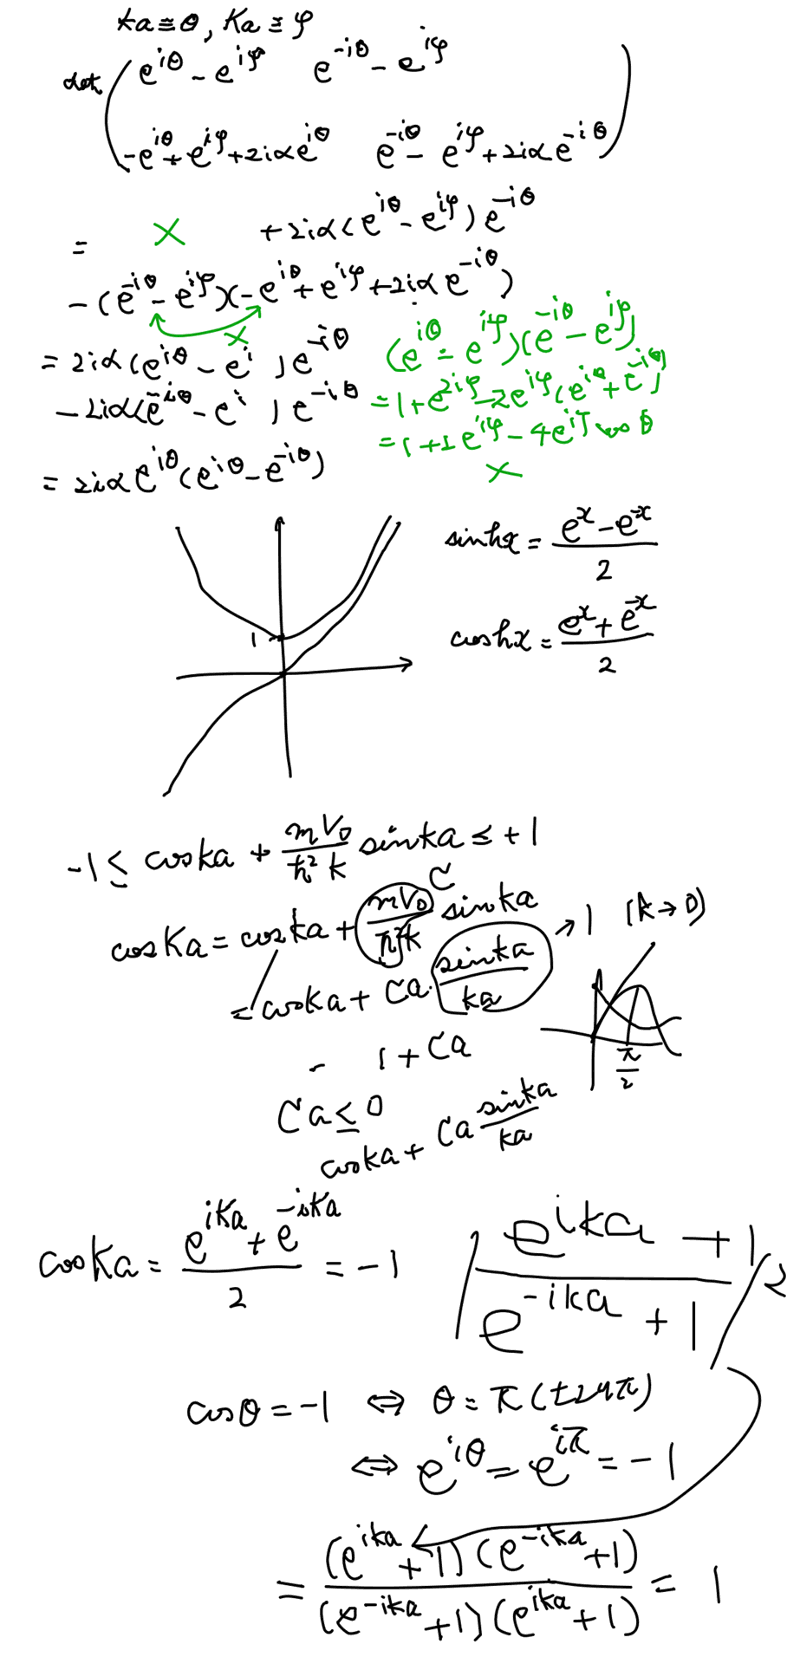 ka ≡ θ, Ka ≡ φ
det ( e^{iθ} - e^{iφ}   e^{-iθ} - e^{iφ}
-e^{iθ} + e^{iφ} + 2iαe^{iθ}   e^{-iθ} - e^{iφ} + 2iαe^{-iθ} )
= X + 2iα(e^{iθ} - e^{iφ})e^{-iθ}
-(e^{-iθ} - e^{iφ})(-e^{iθ} + e^{iφ} + 2iαe^{-iθ})
X
= 2iα(e^{iθ} - e^{i })e^{-iθ}
- 2iα(e^{-iθ} - e^{i })e^{-iθ}
= 2iαe^{iθ}(e^{iθ} - e^{-iθ})
(e^{iθ} - e^{iφ})(e^{-iθ} - e^{iφ})
= 1 + e^{2iφ} - 2e^{iφ}(e^{iθ} + e^{-iθ})
= 1 + 1e^{iφ} - 4e^{iφ} cos θ
X
sinhx = \frac{e^x - e^{-x}}{2}
coshx = \frac{e^x + e^{-x}}{2}
1
-1 ≤ coska + \frac{mV_0}{ħ^2 k} sinka ≤ +1
C
cosKa = coska + \frac{mV_0}{ħ^2 k} sinka
= coska + Ca · \frac{sinka}{ka} → 1 (k → 0)
\frac{π}{2}
- 1 + Ca
Ca ≤ 0
coska + Ca \frac{sinka}{ka}
cosKa = \frac{e^{iKa} + e^{-iKa}}{2} = -1
| \frac{e^{ika} + 1}{e^{-ika} + 1} |^2
cosθ = -1 ⇔ θ = π (+2nπ)
⇔ e^{iθ} = e^{iπ} = -1
= \frac{(e^{ika} + 1)(e^{-ika} + 1)}{(e^{-ika} + 1)(e^{ika} + 1)} = 1